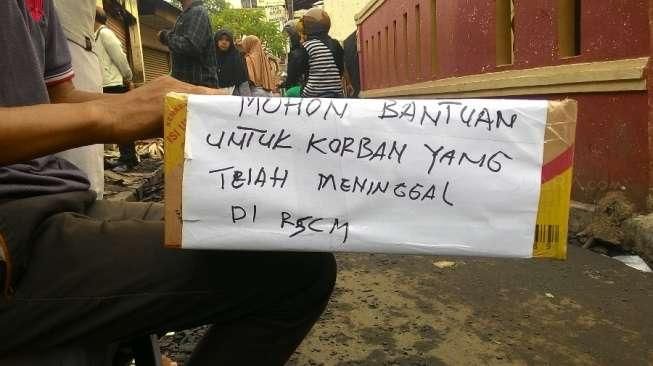 MOHON BANTUAN
UNTUK KORBAN YANG
TELAH MENINGGAL
DI RSCM